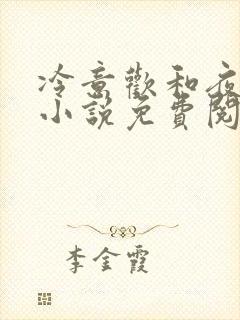 冷意歡和夜
小說免費閱
李金霞